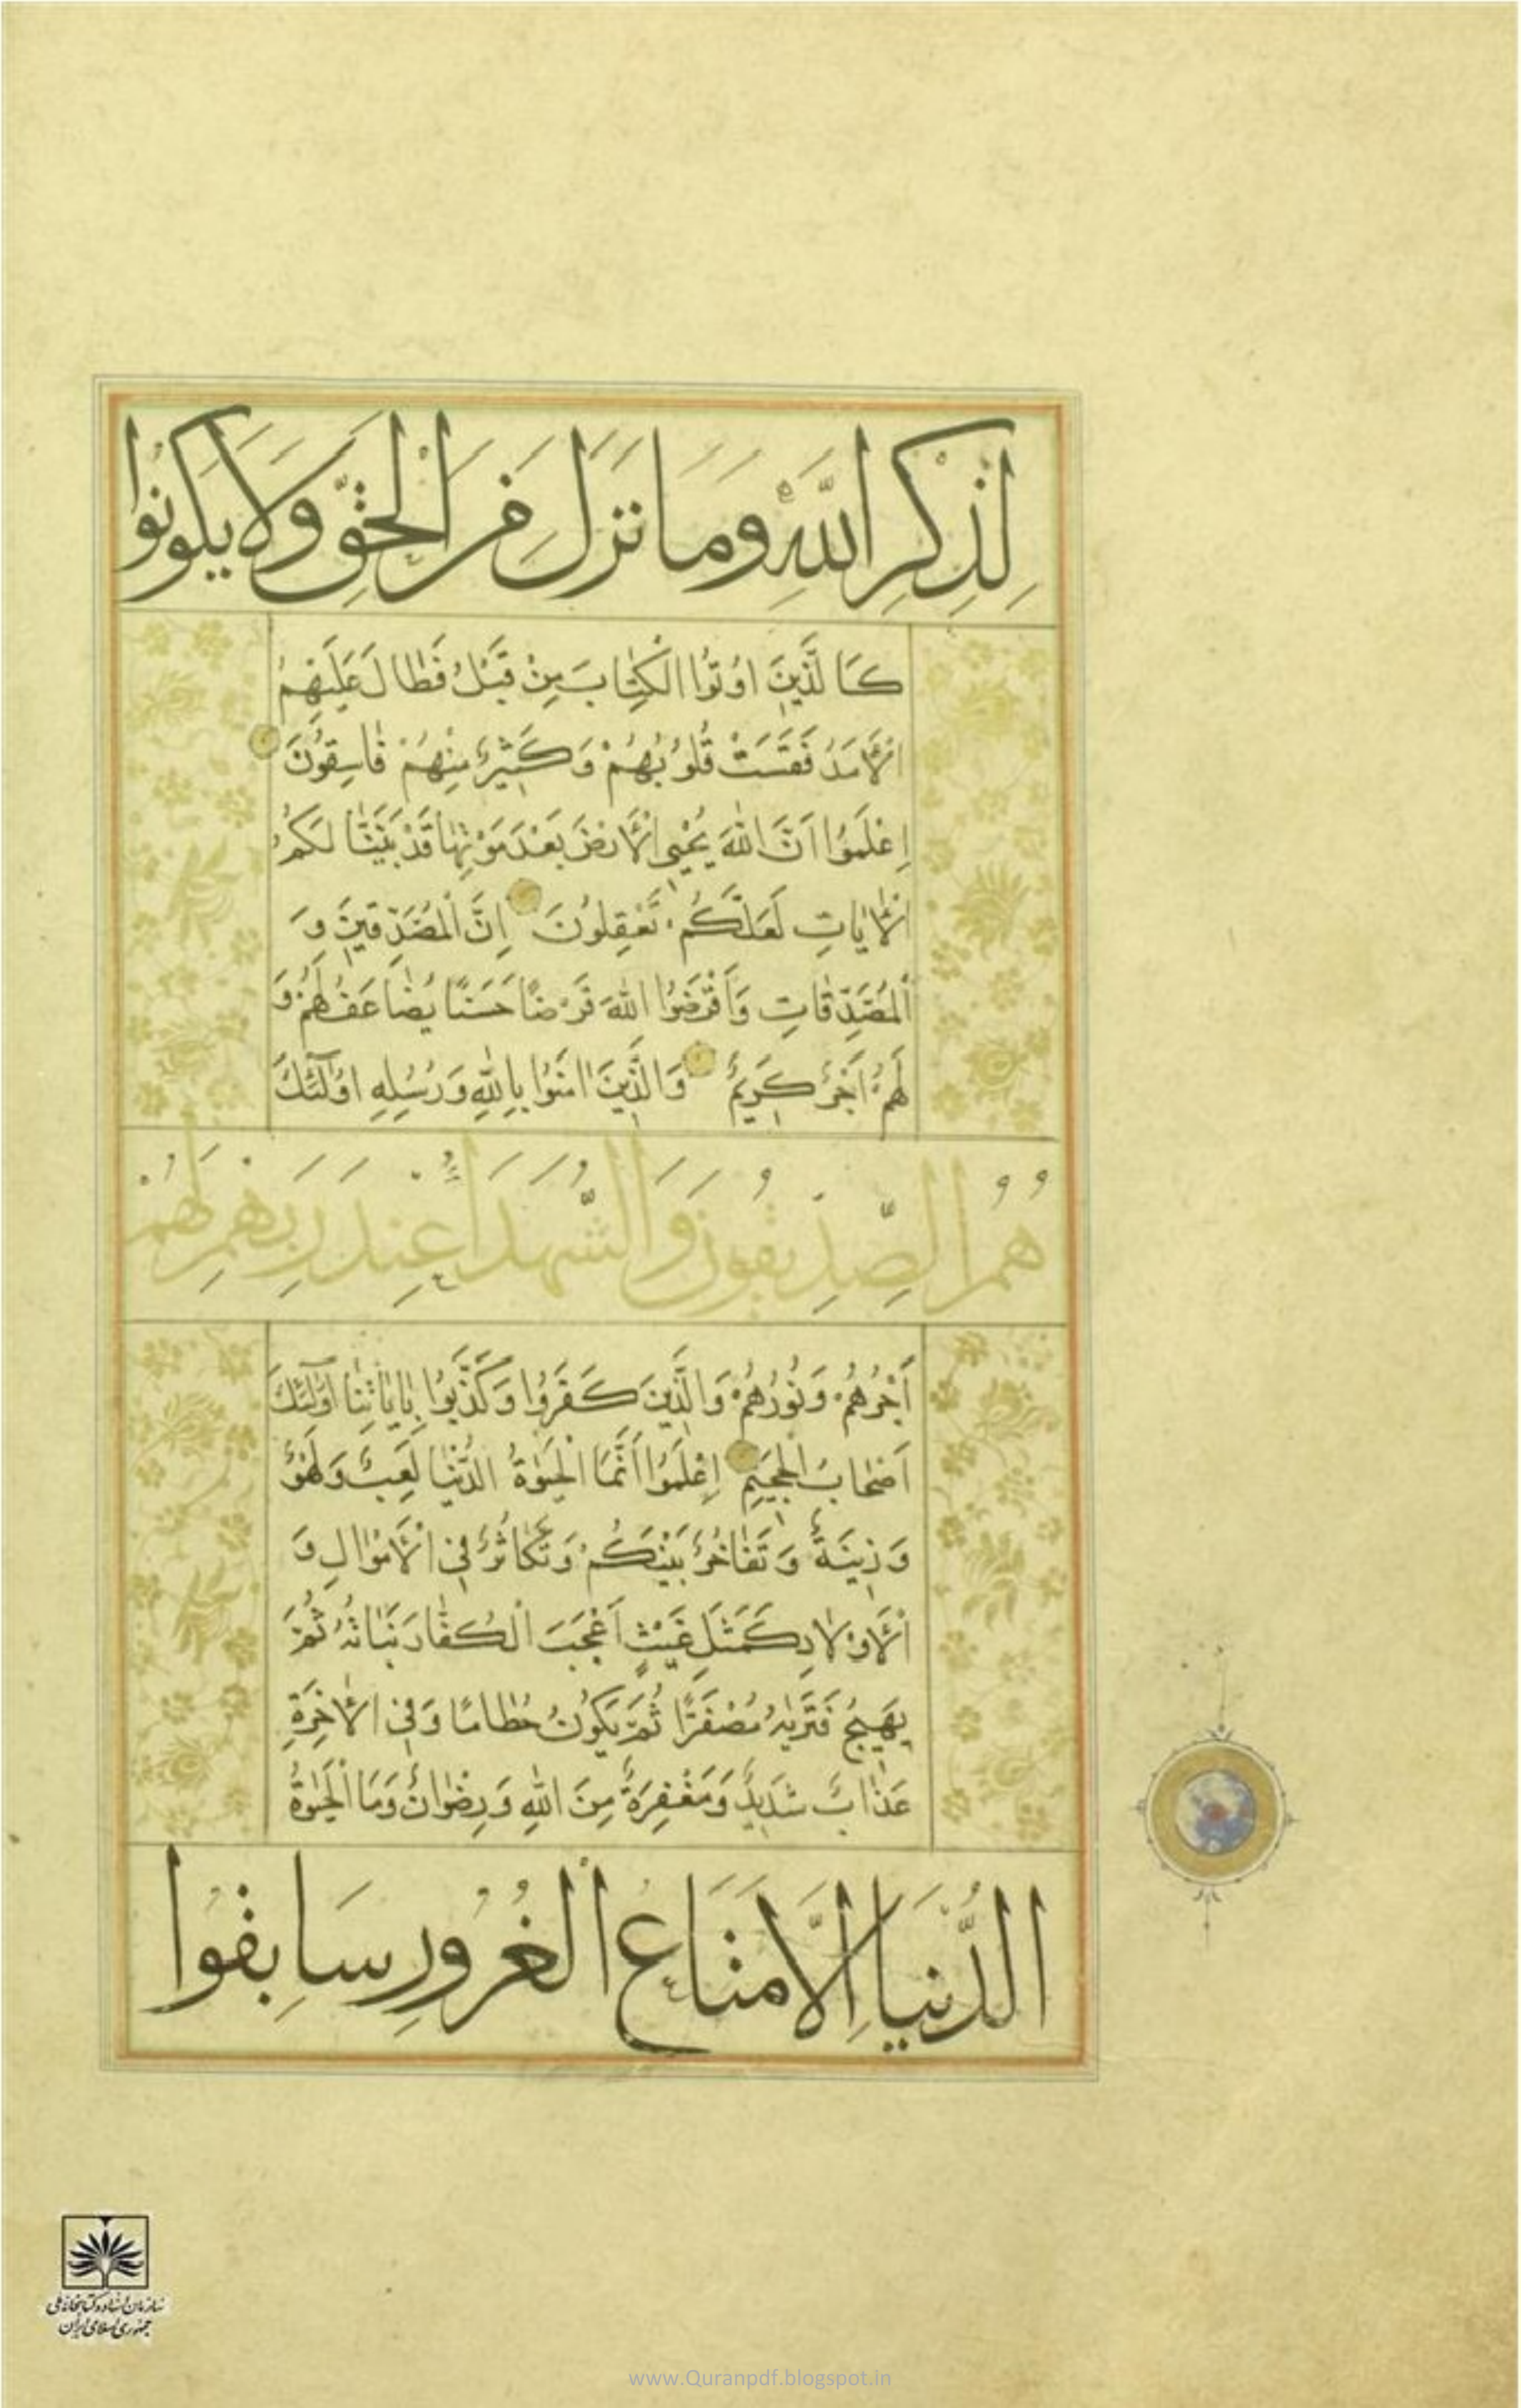 لِذِكْرِ اللَّهِ وَمَا نَزَلَ مِنَ الْحَقِّ وَلَا يَكُونُوا
كَالَّذِينَ اُوتُوا الْكِتَابَ مِنْ قَبْلُ فَطَالَ عَلَيْهِمُ
الْأَمَدُ فَقَسَتْ قُلُوبُهُمْ وَكَثِيرٌ مِنْهُمْ فَاسِقُونَ
اِعْلَمُوا اَنَّ اللَّهَ يُحْيِي الْأَرْضَ بَعْدَ مَوْتِهَا قَدْ بَيَّنَّا لَكُمُ
الْاٰيَاتِ لَعَلَّكُمْ تَعْقِلُونَ اِنَّ الْمُصَّدِّقِينَ وَ
الْمُصَّدِّقَاتِ وَأَقْرَضُوا اللَّهَ قَرْضًا حَسَنًا يُضَاعَفُ لَهُمْ وَ
لَهُمْ اَجْرٌ كَرِيمٌ وَالَّذِينَ اٰمَنُوا بِاللَّهِ وَرُسُلِهِ اُولٰٓئِكَ
هُمُ الصِّدِّيقُونَ وَالشُّهَدَاءُ عِنْدَ رَبِّهِمْ لَهُمْ
أَجْرُهُمْ وَنُورُهُمْ وَالَّذِينَ كَفَرُوا وَكَذَّبُوا بِاٰيَاتِنَا اُولٰٓئِكَ
اَصْحَابُ الْجَحِيمِ اِعْلَمُوا اَنَّمَا الْحَيٰوةُ الدُّنْيَا لَعِبٌ وَلَهْوٌ
وَزِينَةٌ وَتَفَاخُرٌ بَيْنَكُمْ وَتَكَاثُرٌ فِي الْأَمْوَالِ وَ
الْأَوْلَادِ كَمَثَلِ غَيْثٍ اَعْجَبَ الْكُفَّارَ نَبَاتُهُ ثُمَّ
يَهِيجُ فَتَرٰيهُ مُصْفَرًّا ثُمَّ يَكُونُ حُطَامًا وَفِي الْاٰخِرَةِ
عَذَابٌ شَدِيدٌ وَمَغْفِرَةٌ مِنَ اللَّهِ وَرِضْوَانٌ وَمَا الْحَيٰوةُ
الدُّنْيَا اِلَّا مَتَاعُ الْغُرُورِ سَابِقُوا
سازمان اسناد و کتابخانه ملی
جمهوری اسلامی ایران
www.Quranpdf.blogspot.in